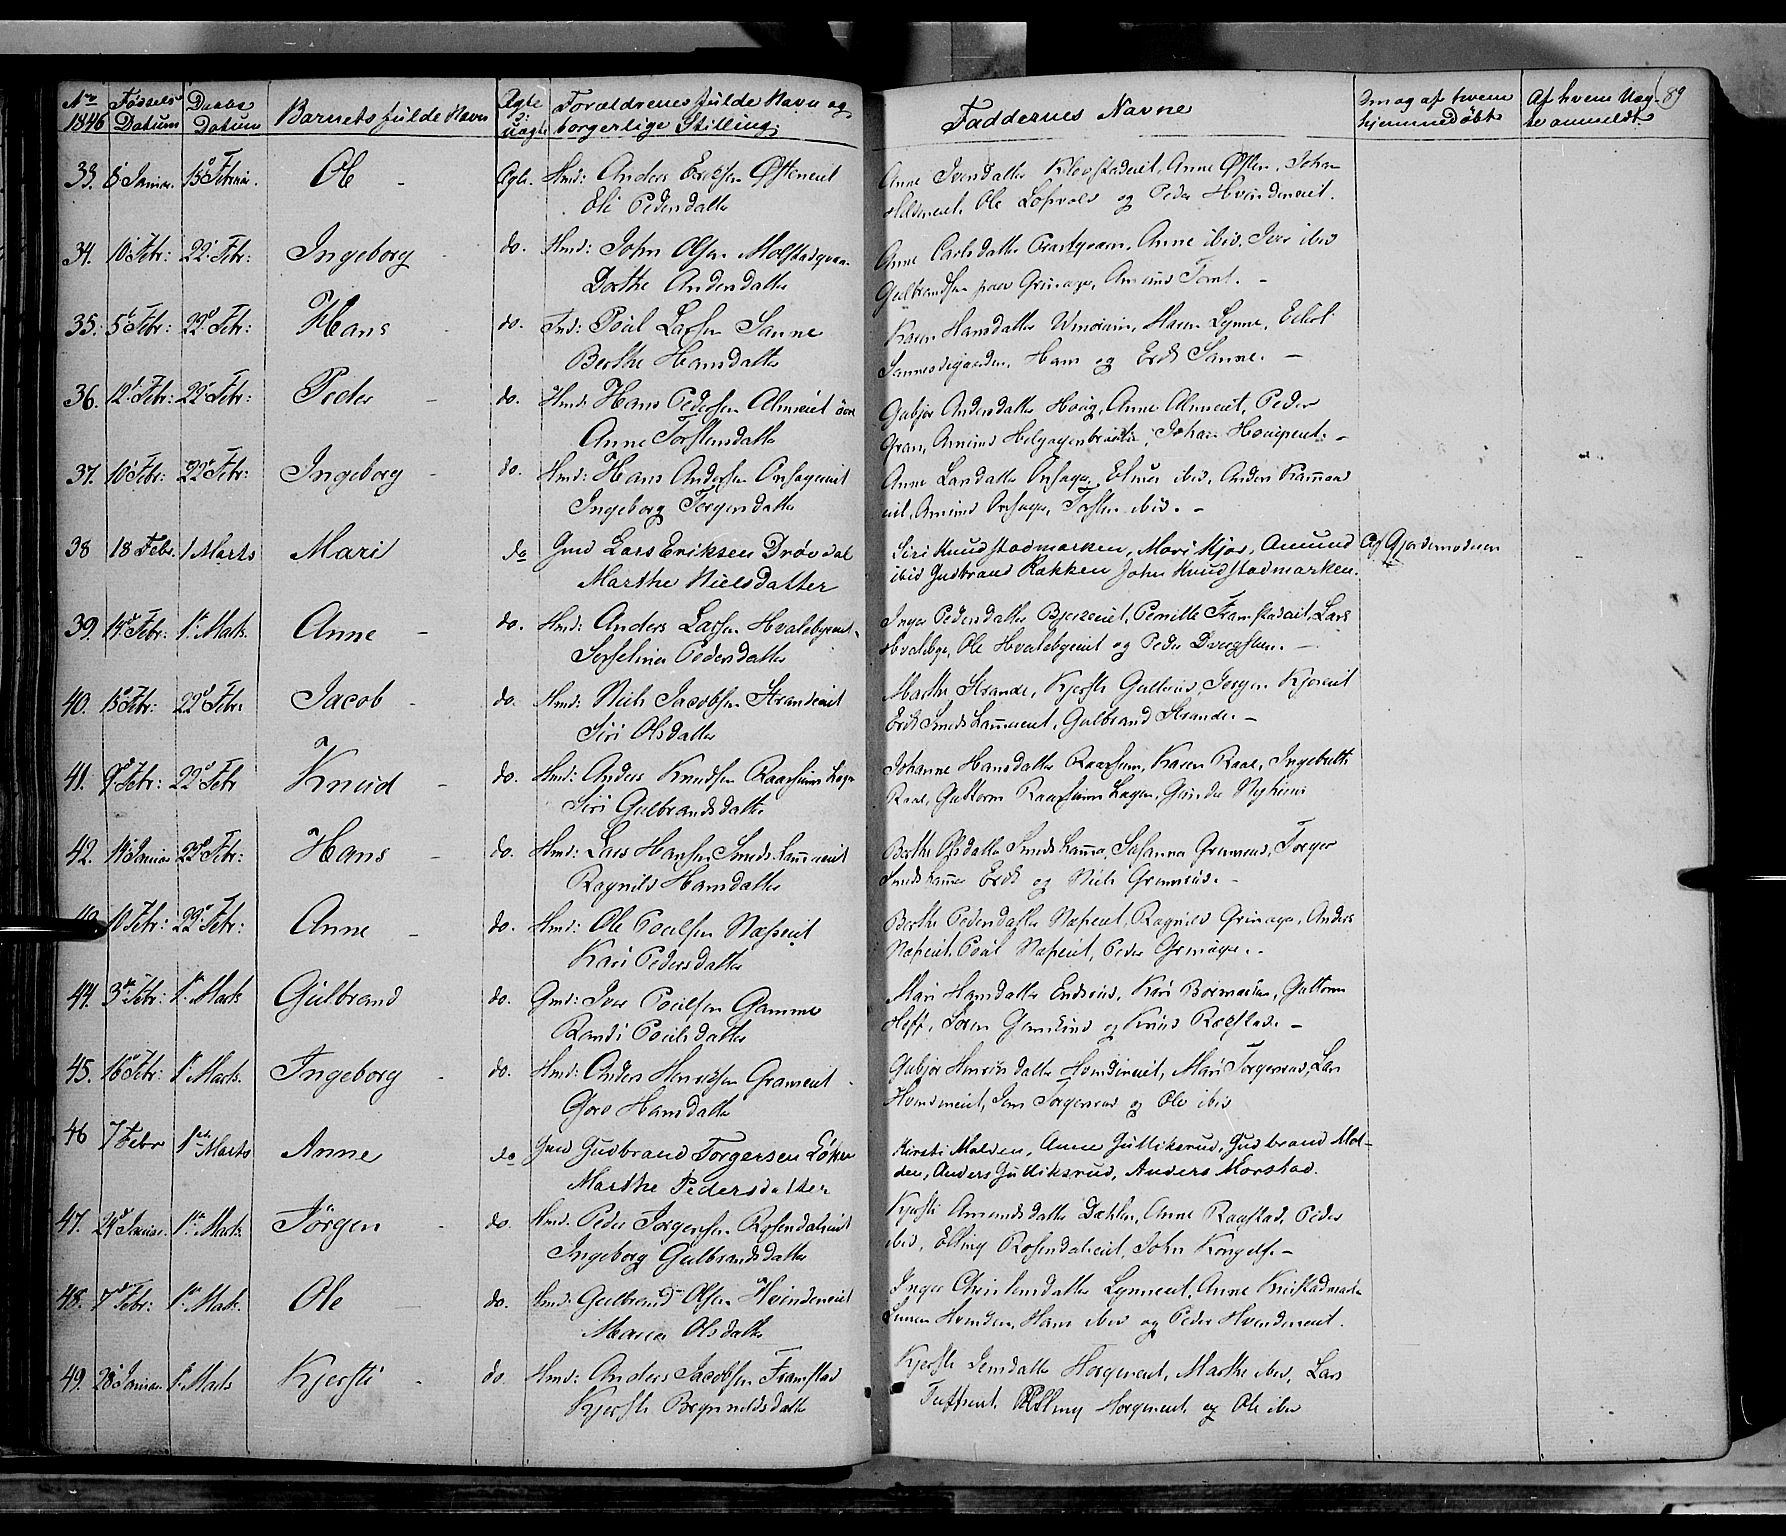 No 1846 Fødsels Datum Daabs Datum Barnets fulde Navn Ægte ell: uægte Forældrenes fulde Navn og borgerlige Stilling. Faddernes Navne Om og af hvem hjemmedøbt Af hvem Uægte anmeldt 89
33. 8 Januar 15de Februar. Ole Ægte. Hmd: Anders Ericksen Østeneiet
Eli Pedersdatter
Anne Iversdatter Klovstadeiet, Anne Østen, Johan
Ole og Peder Hvindeneiet.
34. 10 Febr: 22 Febr: Ingeborg do. Hmd: John Olsen
Dorthe Andersdatter
Anne Carlsdatter Anne ibid, Iver ibid
Gulbrandsen paa Grinager, Amund Tomt.
35. 5 Febr: 22d Febr: Hans do. Ind: Poul Larsen Sanne
Berthe Hansdatter
Karen Hansdatter Maren Lynne,
Sannesvegaarden, Hans og Erik Sanne.
36. 12 Febr: 22 Febr: Peder do. Hmd: Hans Pedersen Almeiet
Anne Torstensdatter
Gubjør Andersdatter Houg, Anne Almeiet, Peder
Gran, Amund Helgagenbraaten, Johan
37. 10 Febr: 22d Febr: Ingeborg do. Hmd: Hans Andersen Onsageeiet
Ingeborg Jørgensdatter
Anne Larsdatter Onsager, ibid, Anders
eiet, Amund Onsager, Torsten ibid.
38 18 Febr. 1 Marts Mari do Gmd Lars Eriksen Drøvdal
Marthe Nielsdatter
Siri Knudstadmarken, Mari Kjos, Amund Af Gjordemoderen
ibid Gudbrand Rækken John Knudstadmarken.
39. 14d Febr: 1ste Marts. Anne do. Hmd: Anders Larsen Hvalebyeiet
Pedersdatter
Inger Pedersdatter Bjerkeeiet, Pernille Framstadeiet, Lars
Hvalebye, Ole Hvalebyeiet og Peder Dvergsteen.
40. 15d Febr: 22d Febr: Jacob do. Hmd: Niels Jacobsen Strandeeiet
Siri Olsdatter
Marthe Strande, Kjersti Gullerud, Jørgen Kjoseiet
Erik Smedshammereiet, Gulbrand Strande.
41. 9d Febr: 22d Febr Knud do. Hmd: Anders Knudsen Raassum
Siri Gulbrandsdatter
Johanne Hansdatter Raassum, Karen Raae,
Raae, Guttorm Raassum Hagen,
42. 14 Januar 22d Febr: Hans do. Hmd: Lars Hansen Smedshammereiet
Ragnild Hansdatter
Berthe Olsdatter Smedshammer, Susanna Grimsrud, Torger
Smedshammer Erik og Niels Grimsrud.
43. 10 Febr: 22d Febr: Anne do. Hmd: Ole Poulsen Næseiet
Kari Pedersdatter
Berthe Pedersdatter Næseiet, Ragnild Grinager, Anders
Næseiet, Poul Næseiet, Peder Grinager.
44. 3die Febr: 1ste Marts Gulbrand do. Gmd: Iver Poulsen Gamme
Randi Poulsdatter
Mari Hansdatter Endrud, Kari Guttorm
Søren og Knud Rækstad.
45. 16d Febr: 1ste Marts. Ingeborg do. Hmd: Anders Henriksen Grameiet
Goro Hansdatter
Gubjør Henriksdatter Hvindeneiet, Mari Torgersrud, Lars
Hvindeneiet, Jens Torgersrud og Ole ibid
46 7 Febr 1ste Marts Anne do Gmd Gudbrand Torgersen Løken
Marthe Pedersdatter
Kirsti Molden, Anne Gulliksrud, Gudbrand Mol-
den, Anders Gulliksrud, Anders Morstad.
47. 24d Januar. 1ste Marts Jörgen do. Hmd. Peder Jørgensen Rosendaleiet
Ingeborg Gulbrandsdatter
Kjersti Amundsdatter Dæhlen, Anne Raastad, Peder
ibid, Elling Rosendaleiet, John
48. 7d Febr: 1ste Marts. Ole do. Hmd: Gulbrand Olsen Hvindeneiet
Maria Olsdatter
Inger Christensdatter Lynneeiet, Anne
Hvinden, Hans ibid og Peder Hvindeneiet.
49. 28 Januar 1ste Marts Kjersti do Hmd: Anders Jacobsen Framstad
Kjersti Brynnildsdatter
Kjersti Jensdatter Horgeneiet, Marthe ibid, Lars
Tufteeiet, Elling Horgeneiet og Ole ibid